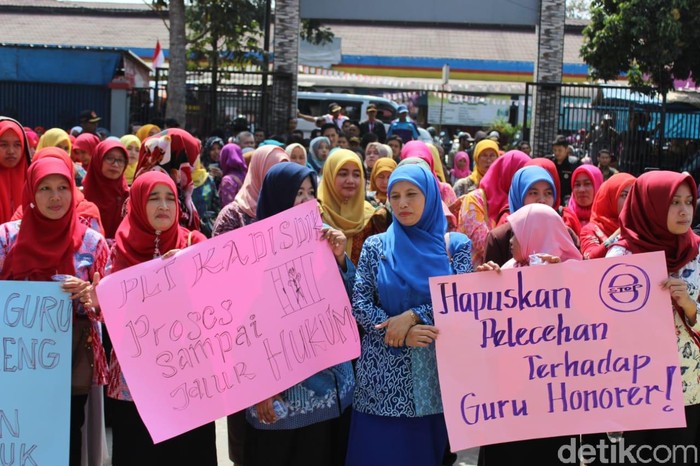 GURU
ENG
N
UK
PLT KADISDIK
Proses
Sampai
Jalur HUKUM
Hapuskan
Pelecehan
Terhadap
Guru Honorer!
STOP
detikcom